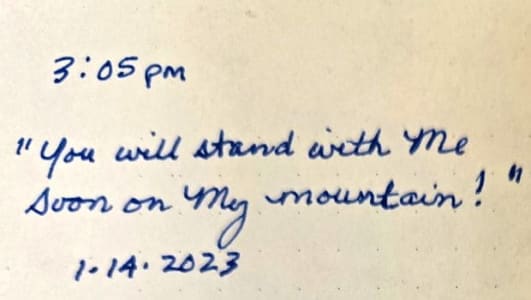 3:05 pm
"You will stand with Me
Soon on My mountain!"
1.14.2023